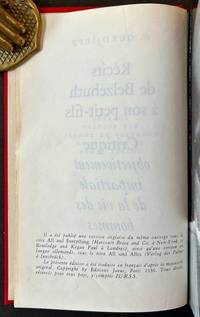 G. GURDJIEFF
Récits
de Belzébuth
à son petit-fils
Critique
objectivement
impartiale
de la vie des
hommes
Il a été publié une version anglaise du même ouvrage sous le
titre All and Everything (Harcourt Brace and Co, à New-York, et
Routledge and Kegan Paul à Londres), ainsi qu'une version en
langue allemande, sous le titre All und Alles (Verlag der Palme à
Innsbruck).
La présente édition a été traduite en français d'après le manuscrit
original. Copyright by Editions Janus, Paris 1956. Tous droits
réservés pour tous pays, y compris l'U.R.S.S.